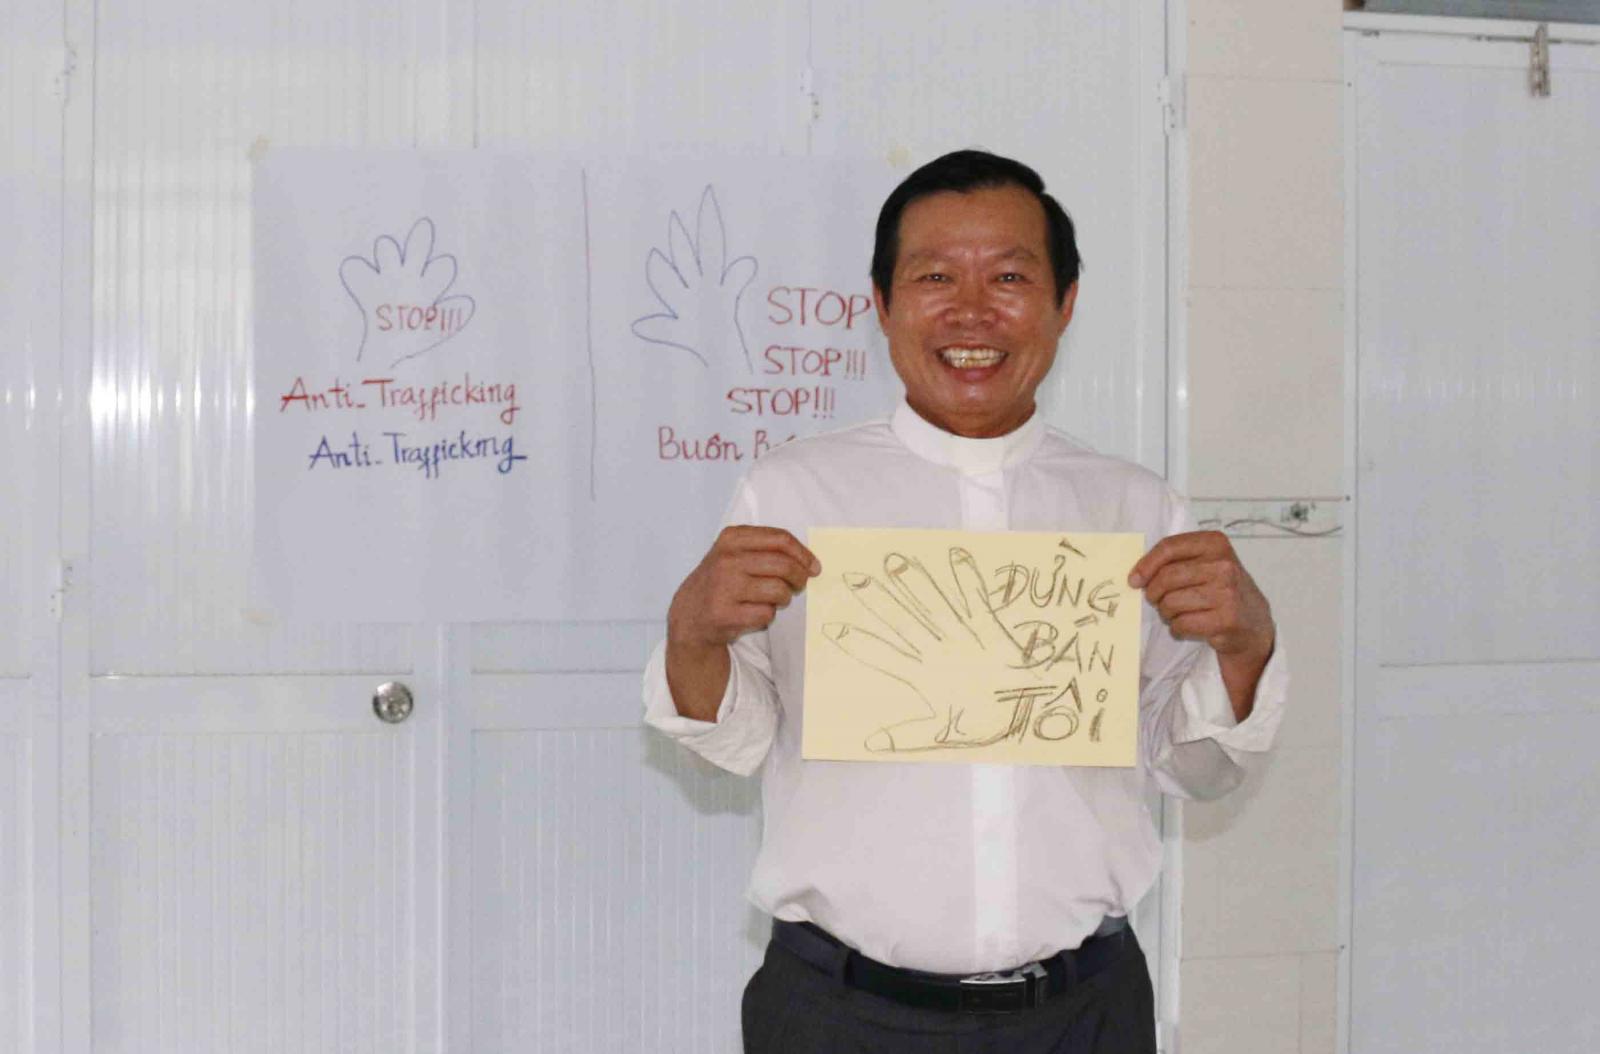 STOP!!!
Anti-Trafficking
Anti-Trafficking
STOP
STOP!!!
STOP!!!
Buôn
ĐỪNG
BÁN
TÔI